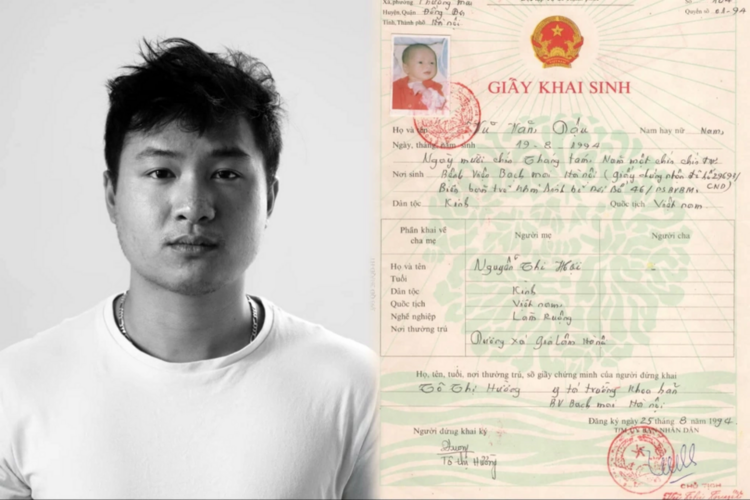 Xã, phường Phương Mai
Huyện, Quận Đống Đa
Tỉnh, Thành phố Hà Nội
Quyển số 01-94
GIẤY KHAI SINH
Họ và tên Vũ Văn Dậu Nam hay nữ Nam
Ngày, tháng, năm sinh 19-8-1994
Ngày mười chín Tháng tám Năm một chín chín tư
Nơi sinh Bệnh viện Bạch mai Hà nội (giấy chứng nhận
Dân tộc Kinh Quốc tịch Việt nam
Phần khai về cha mẹ
Người mẹ
Người cha
Họ và tên Nguyễn Thị
Tuổi
Dân tộc Kinh
Quốc tịch Việt nam
Nghề nghiệp Làm Ruộng
Nơi thường trú Dương Xá Gia Lâm Hà nội
Họ, tên, tuổi, nơi thường trú, số giấy chứng minh của người đứng khai
Tô Thị Hường y tá trưởng Khoa sản
BV Bạch mai Hà nội
Đăng ký ngày 25 tháng 8 năm 1994
TM. ỦY BAN NHÂN DÂN
Người đứng khai ký
Tô thị Hường
CHỦ TỊCH